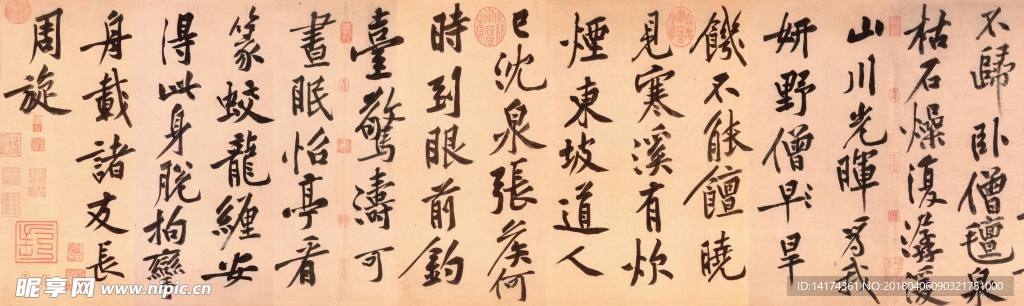 不歸臥僧氈泉
枯石燥復潺湲
山川光暉為我
妍野僧早旱
饑不能饘曉
見寒溪有炊
煙東坡道人
已沈泉張侯何
時到眼前釣
臺驚濤可
晝眠怡亭看
篆蛟龍纏安
得此身脫拘攣
舟載諸友長
周旋
昵享网 www.nipic.cn
ID:14174361 NO:20180406090321781000